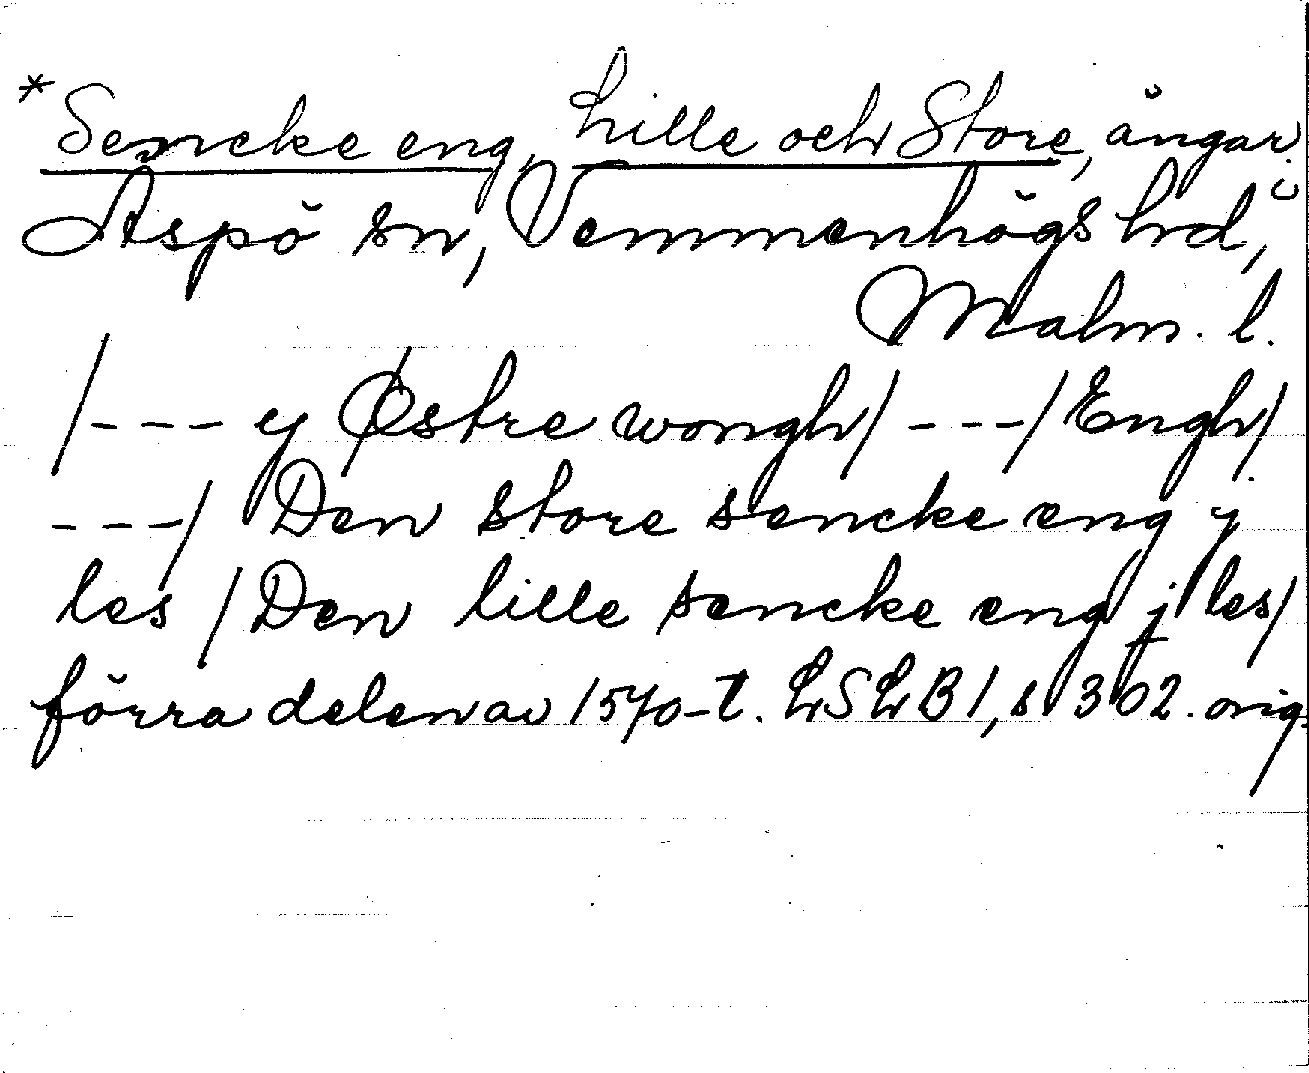 *Sencke eng, Lille och Store, ängar.
Äspö sn, Vemmenhögs hrd,
Malm. l.
/--- y Østre wongh/ ---/ Engh/
---/ Den store sencke eng y
les / Den lille sencke eng j les/
förra delen av 1570-t. LSLB 1, s 302. orig.